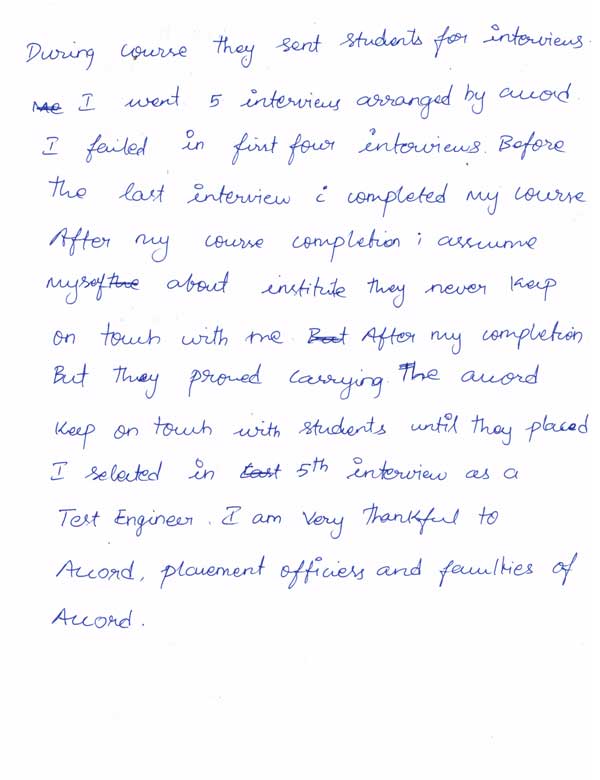 During course they sent students for interviews.
Me I went 5 interviews arranged by accord.
I failed in first four interviews. Before
the last interview i completed my course
After my course completion i assume
myself the about institute they never keep
on touch with me But After my completion
But they proved carrying. The accord
Keep on touch with students until they placed
I selected in last 5th interview as a
Test Engineer. I am very thankful to
Accord, placement officiers and faculties of
Accord.